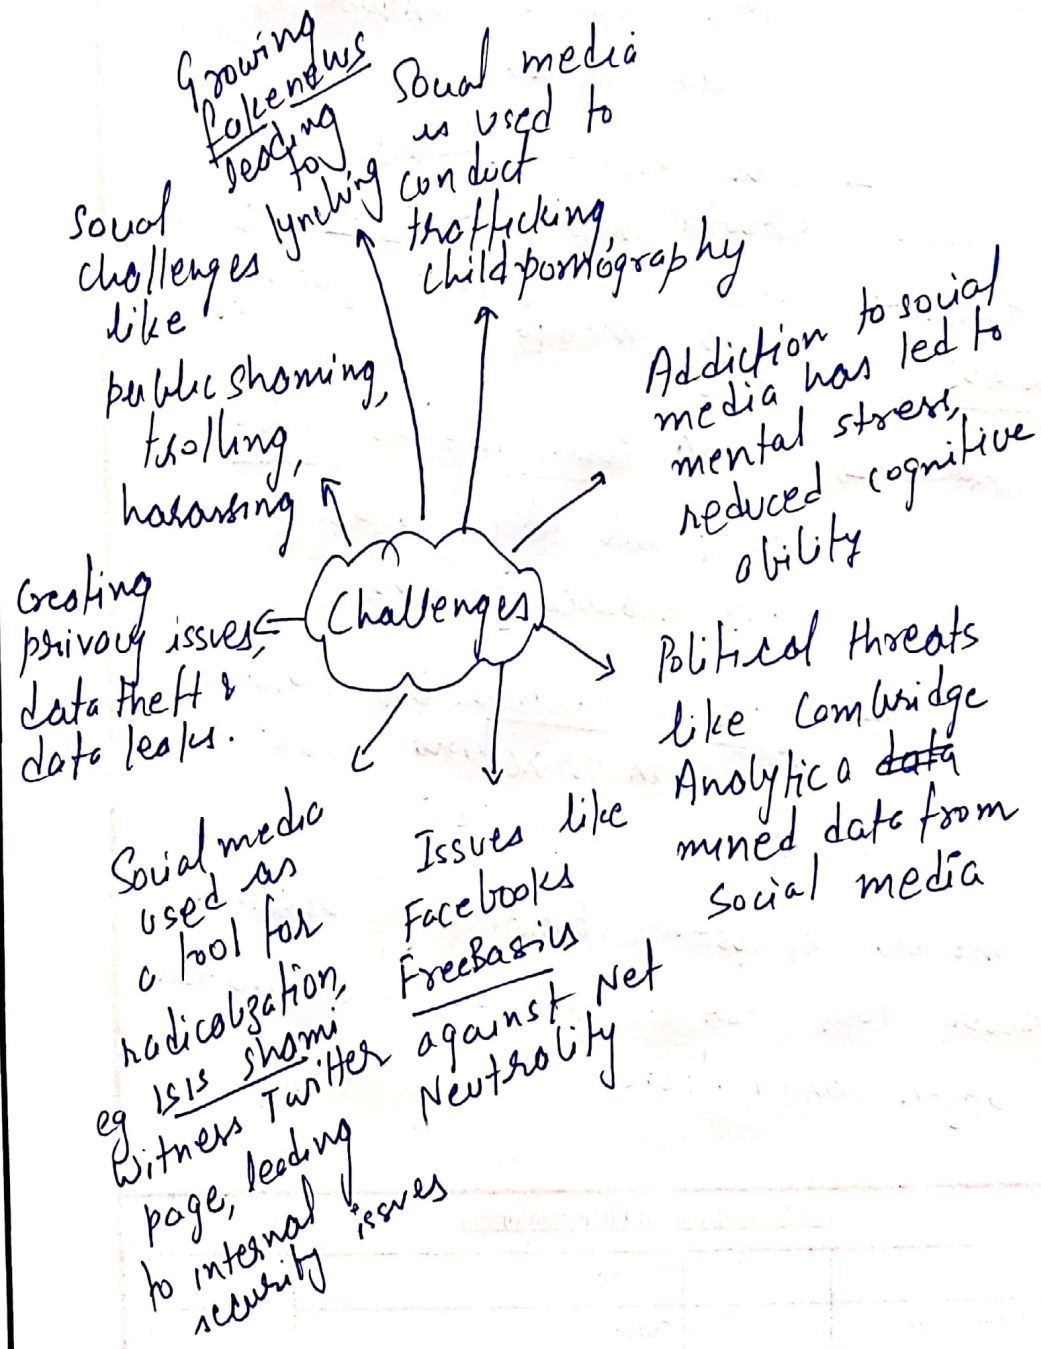 Growing
fakenews
leading
to
lynching
Social media
is used to
conduct
trafficking,
child pornography
Social
challenges
like
public shaming,
trolling,
harassing
Addiction to social
media has led to
mental stress,
reduced cognitive
ability
Challenges
Creating
privacy issues,
data theft &
data leaks.
Political threats
like Cambridge
Analytica data
mined data from
Social media
Social media
used as
a tool for
radicalization,
eg ISIS shami
Witness Twitter
page, leading
to internal
security issues
Issues like
Facebooks
FreeBasics
against Net
Neutrality